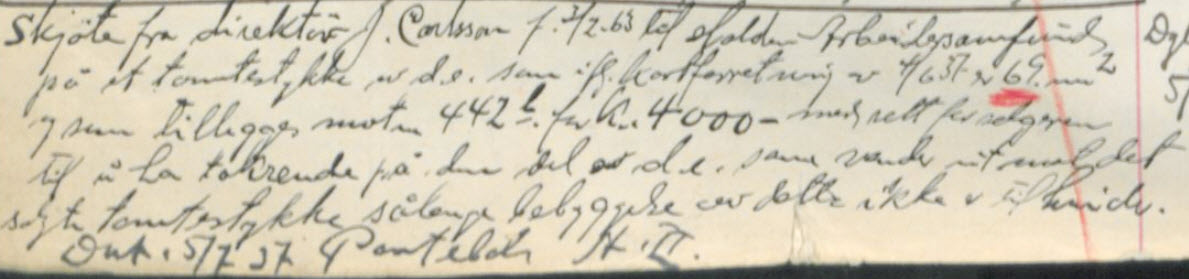 Skjøte fra direktör J. Carlsson f. 3/2-63 til Halden Arbeidersamfund
på et tomtestykke av d.e. som ifl. kartforretning av 4/6 37 er 69. m²
og som tillegges matr. 442 b. for kr. 4000 - med rett for selgeren
til å ha takrende på den del av d.e. som vender ut mot det
solgte tomtestykke sålenge bebyggelse av dette ikke er til hinder.
Dat. 5/7 37 Pantebok II.